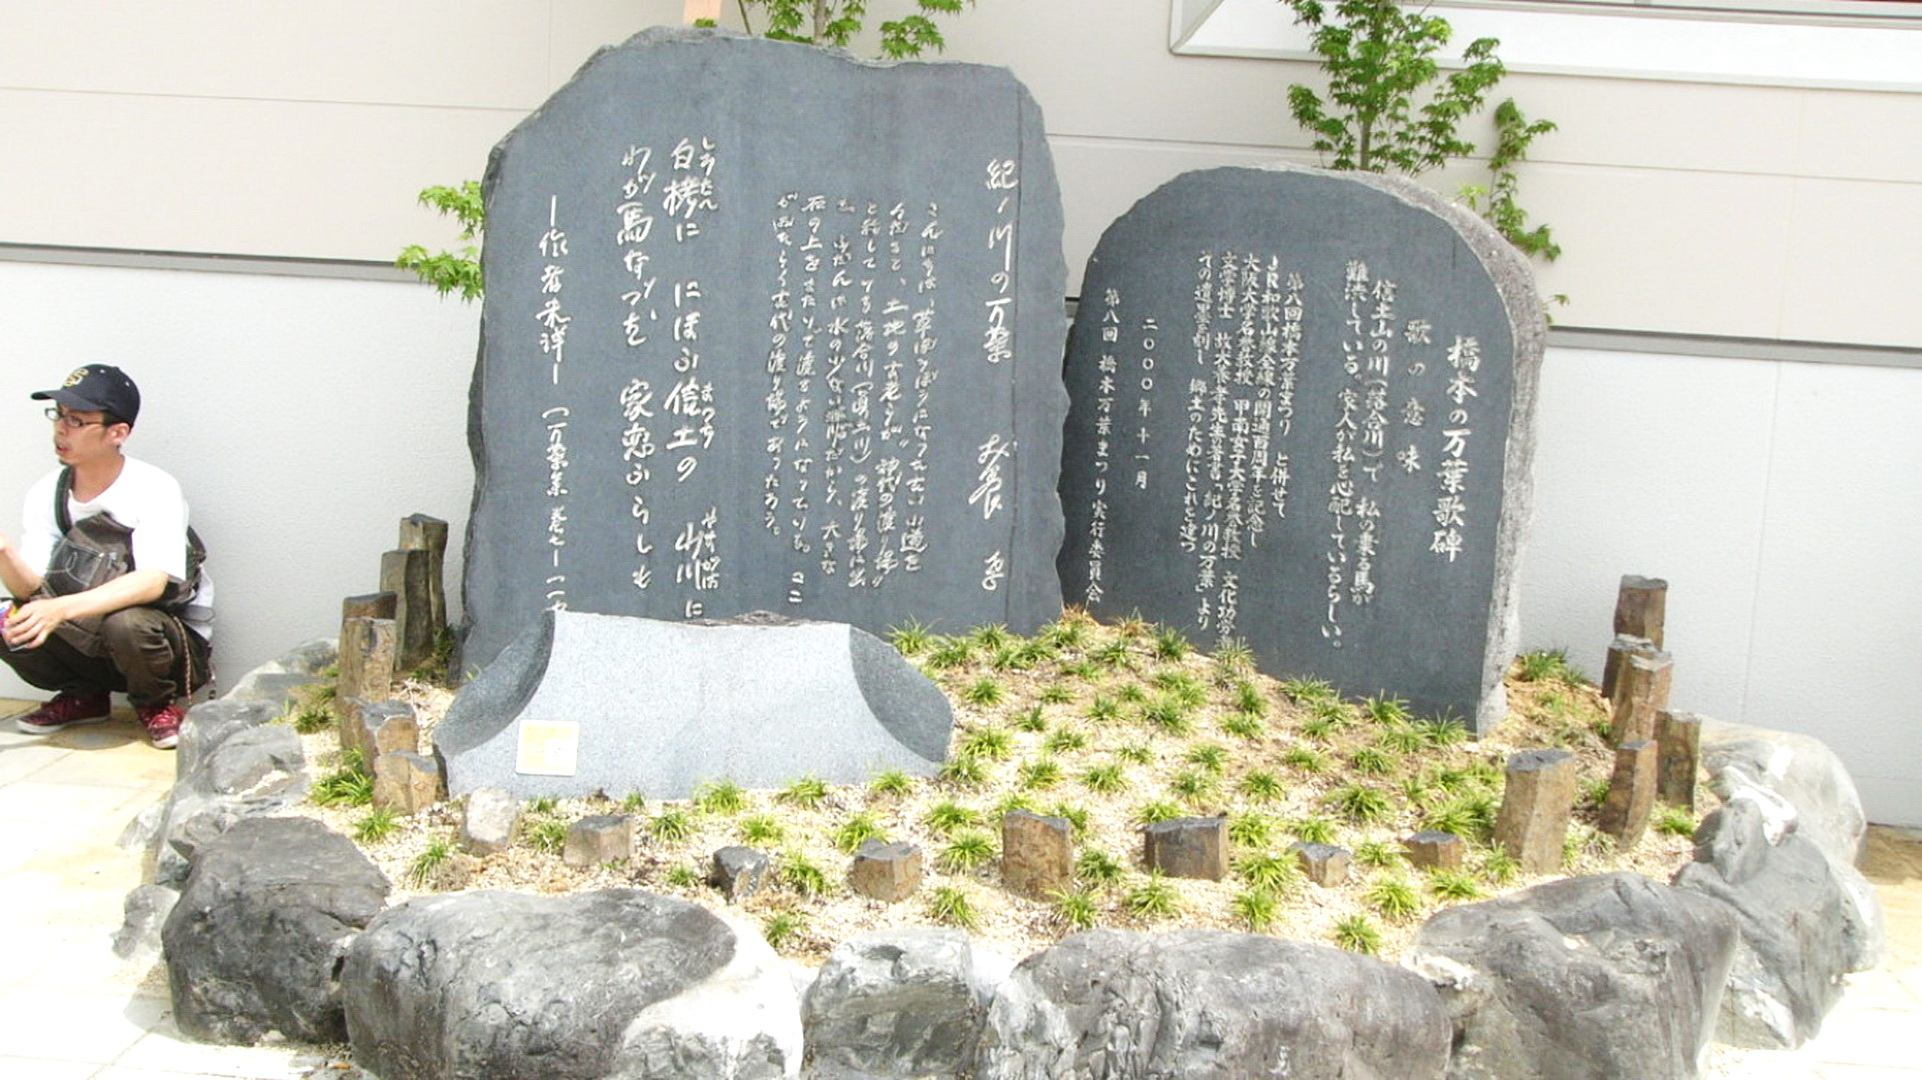 橋本の万葉歌碑
歌の意味
信土山の川(落合川)で 私の乗る馬が
難渋している。家人が私を心配しているらしい。
第八回橋本万葉まつり と併せて
JR和歌山線全線の開通百周年を記念し
大阪大学名誉教授 甲南女子大学名誉教授 文化功労
文学博士 故犬養孝先生著書「紀ノ川の万葉」より
この 刻し 郷土のためにこれを建つ
二〇〇〇年十一月
第八回 橋本万葉まつり実行委員会
紀ノ川の万葉 犬養 孝
草ぼうぼうになった古い小道を
土地の古老らが"神代の渡り場"
と称している落合川(真土川)の渡り場に出
る。ふだんは水の少ない川だから、大きな
石の上をまたいで渡るようになっている。ここ
がおそらく古代の渡り場であったろう。
白栲に にほふ信土の 山川に
わが馬なづむ 家恋ふらしも
—作者未詳— (万葉集 巻七—一一九